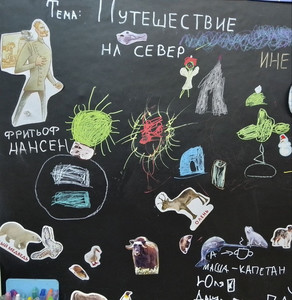 Тема: Путешествие
на север
ине
Фритьоф
Нансен
олень
Маша - капетан
Юля